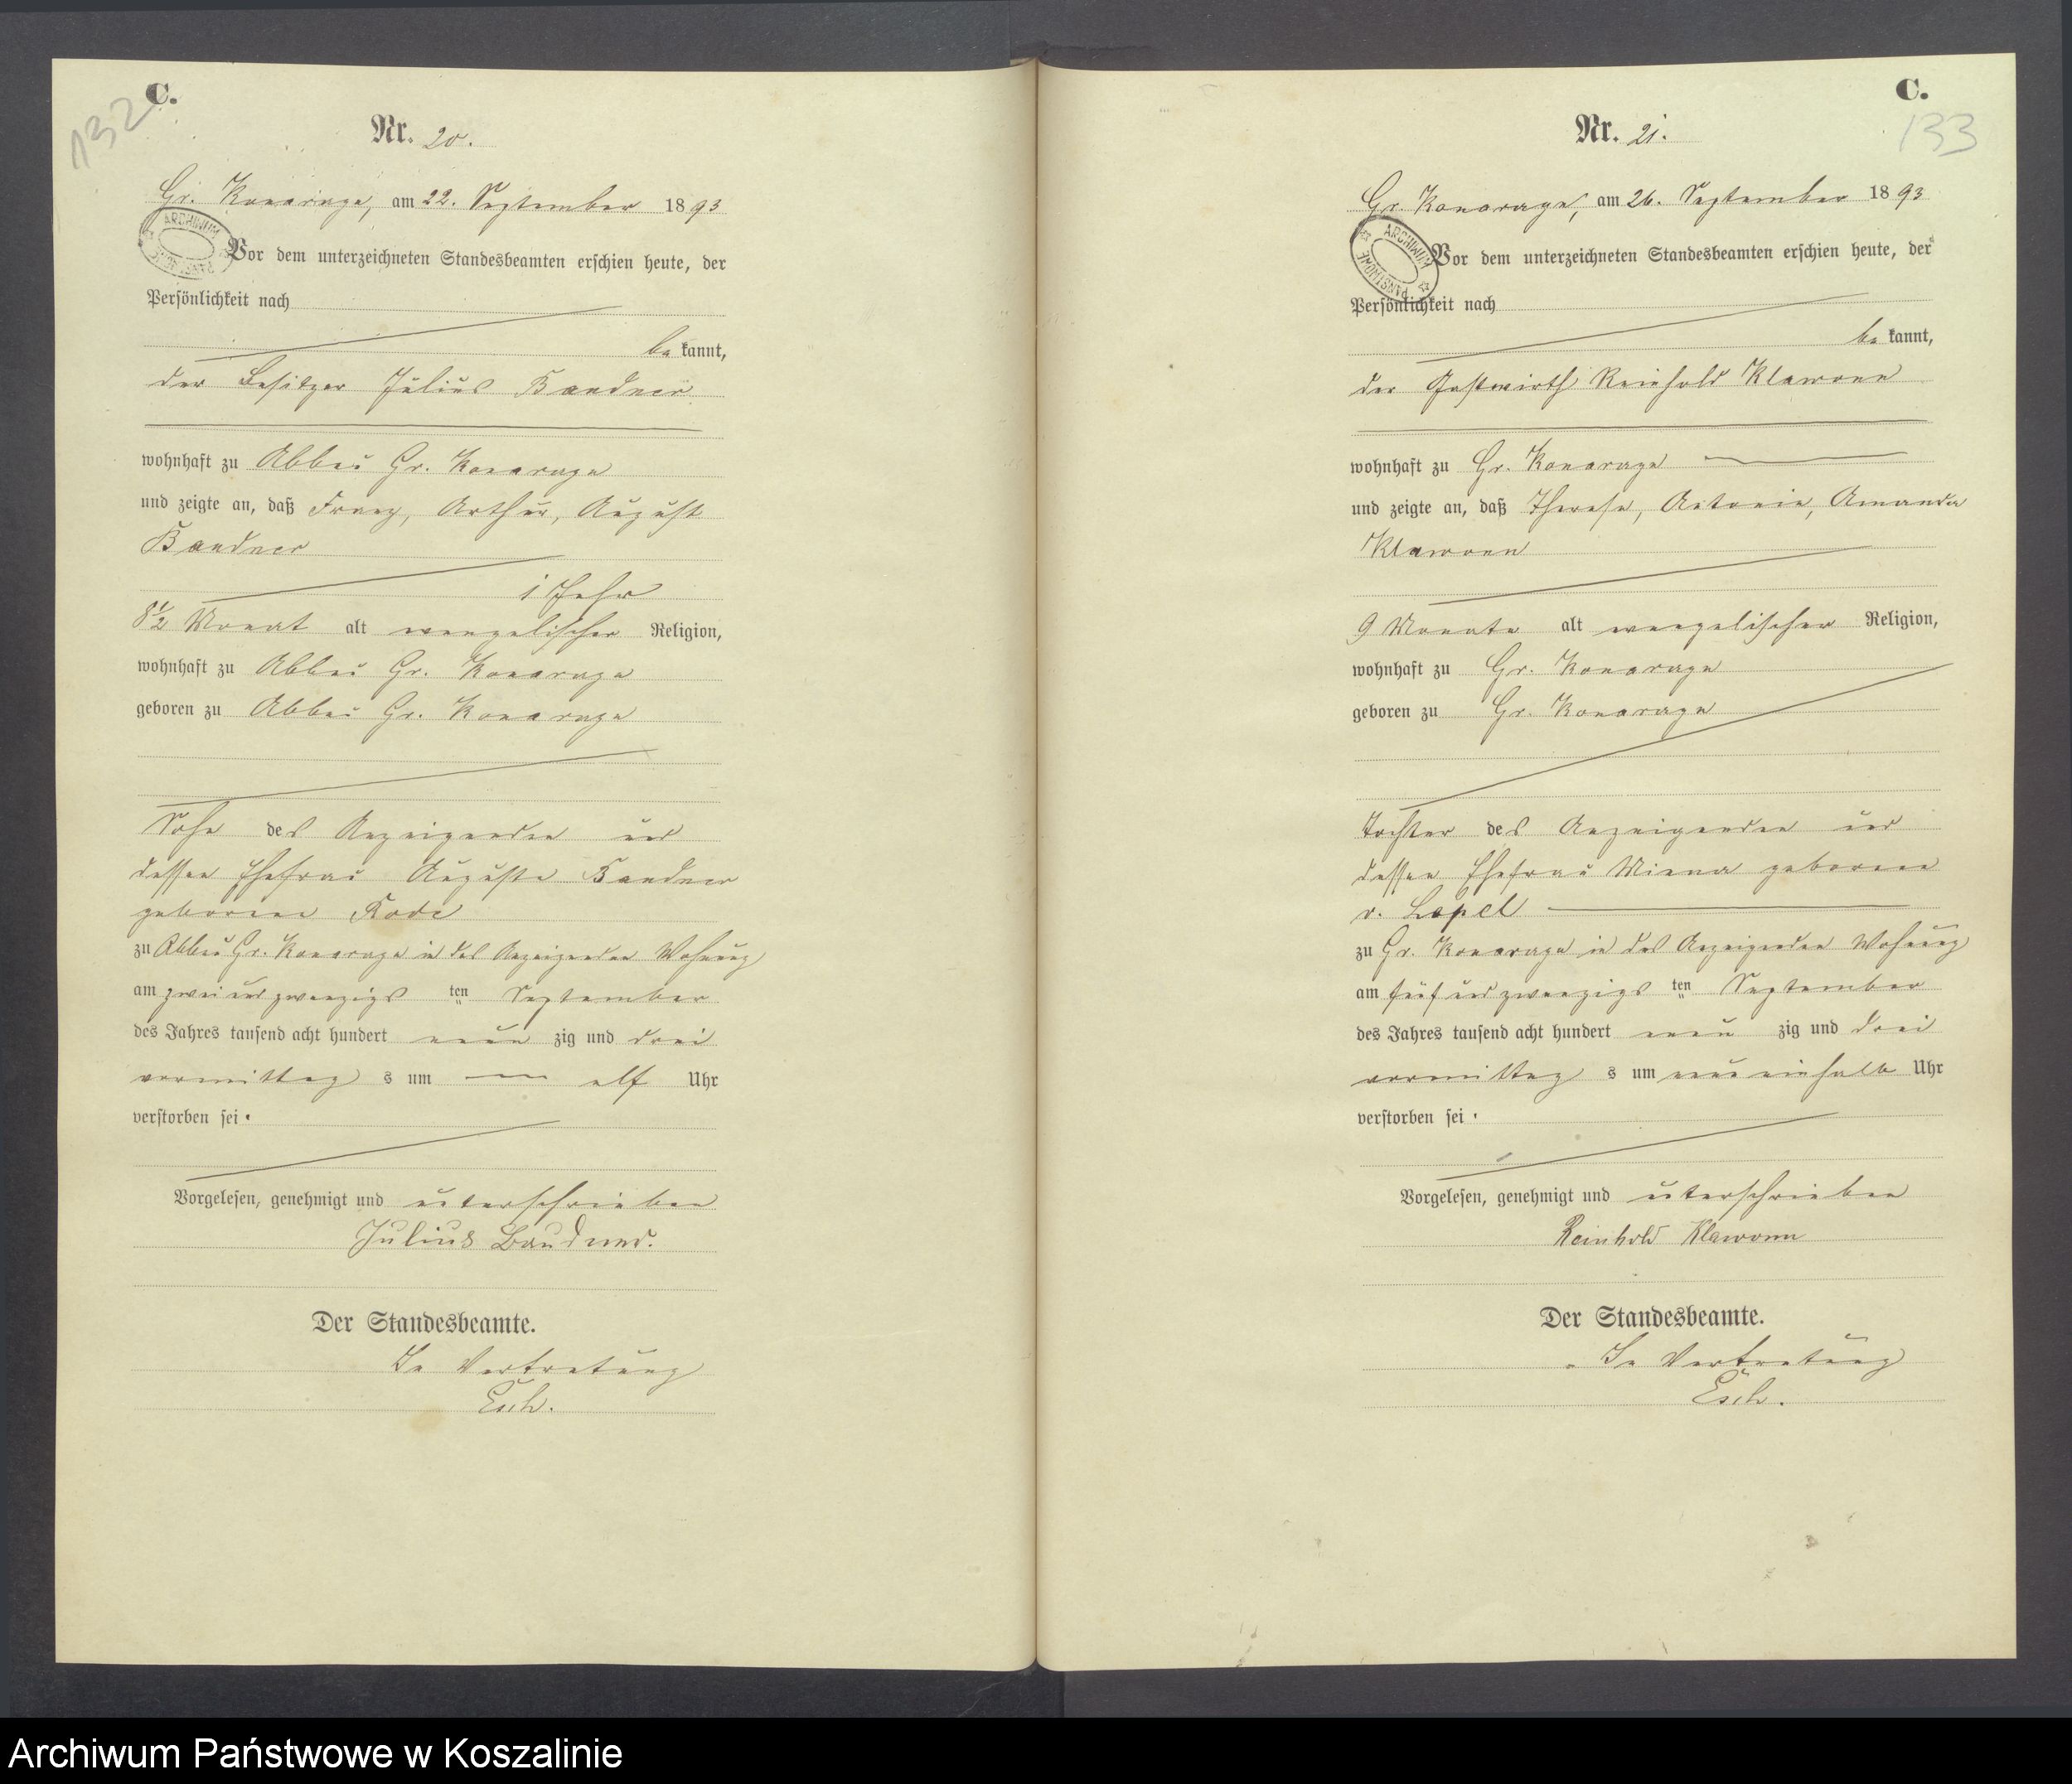 C.
132
Nr. 20.
Gr. Konarczyn, am 22. September 1893
ARCHIWUM PAŃSTWOWE
Vor dem unterzeichneten Standesbeamten erschien heute, der
Persönlichkeit nach
be kannt,
der Besitzer Julius Baudner
wohnhaft zu Abbau Gr.
und zeigte an, daß Franz, Arthur, August
Baudner
1 Jahr
8½ Monat alt evangelischer Religion,
wohnhaft zu Abbau Gr.
geboren zu Abbau Gr.
Sohn des Anzeigenden und
dessen Ehefrau Auguste Baudner
geborene Rode
zu Abbau Gr. in des Anzeigenden Wohnung
am zwei und zwanzigsten September
des Jahres tausend acht hundert neun zig und drei
vormittag s um elf Uhr
verstorben sei.
Vorgelesen, genehmigt und unterschrieben
Julius Baudner.
Der Standesbeamte.
In Vertretung
Esch.
C.
133
Nr. 21.
Gr. am 26. September 1893
ARCHIWUM PAŃSTWOWE
Vor dem unterzeichneten Standesbeamten erschien heute, der
Persönlichkeit nach
be kannt,
der Gastwirth Reinhold Klawonn
wohnhaft zu Gr.
und zeigte an, daß Therese, Antonie, Amanda
Klawonn
9 Monate alt evangelischer Religion,
wohnhaft zu Gr.
geboren zu Gr.
Tochter des Anzeigenden und
dessen Ehefrau Minna geborene
v. Lepel
zu Gr. in des Anzeigenden Wohnung
am fünf und zwanzigsten September
des Jahres tausend acht hundert neun zig und drei
vormittag s um neun einhalb Uhr
verstorben sei.
Vorgelesen, genehmigt und unterschrieben
Reinhold Klawonn
Der Standesbeamte.
In Vertretung
Esch.
Archiwum Państwowe w Koszalinie